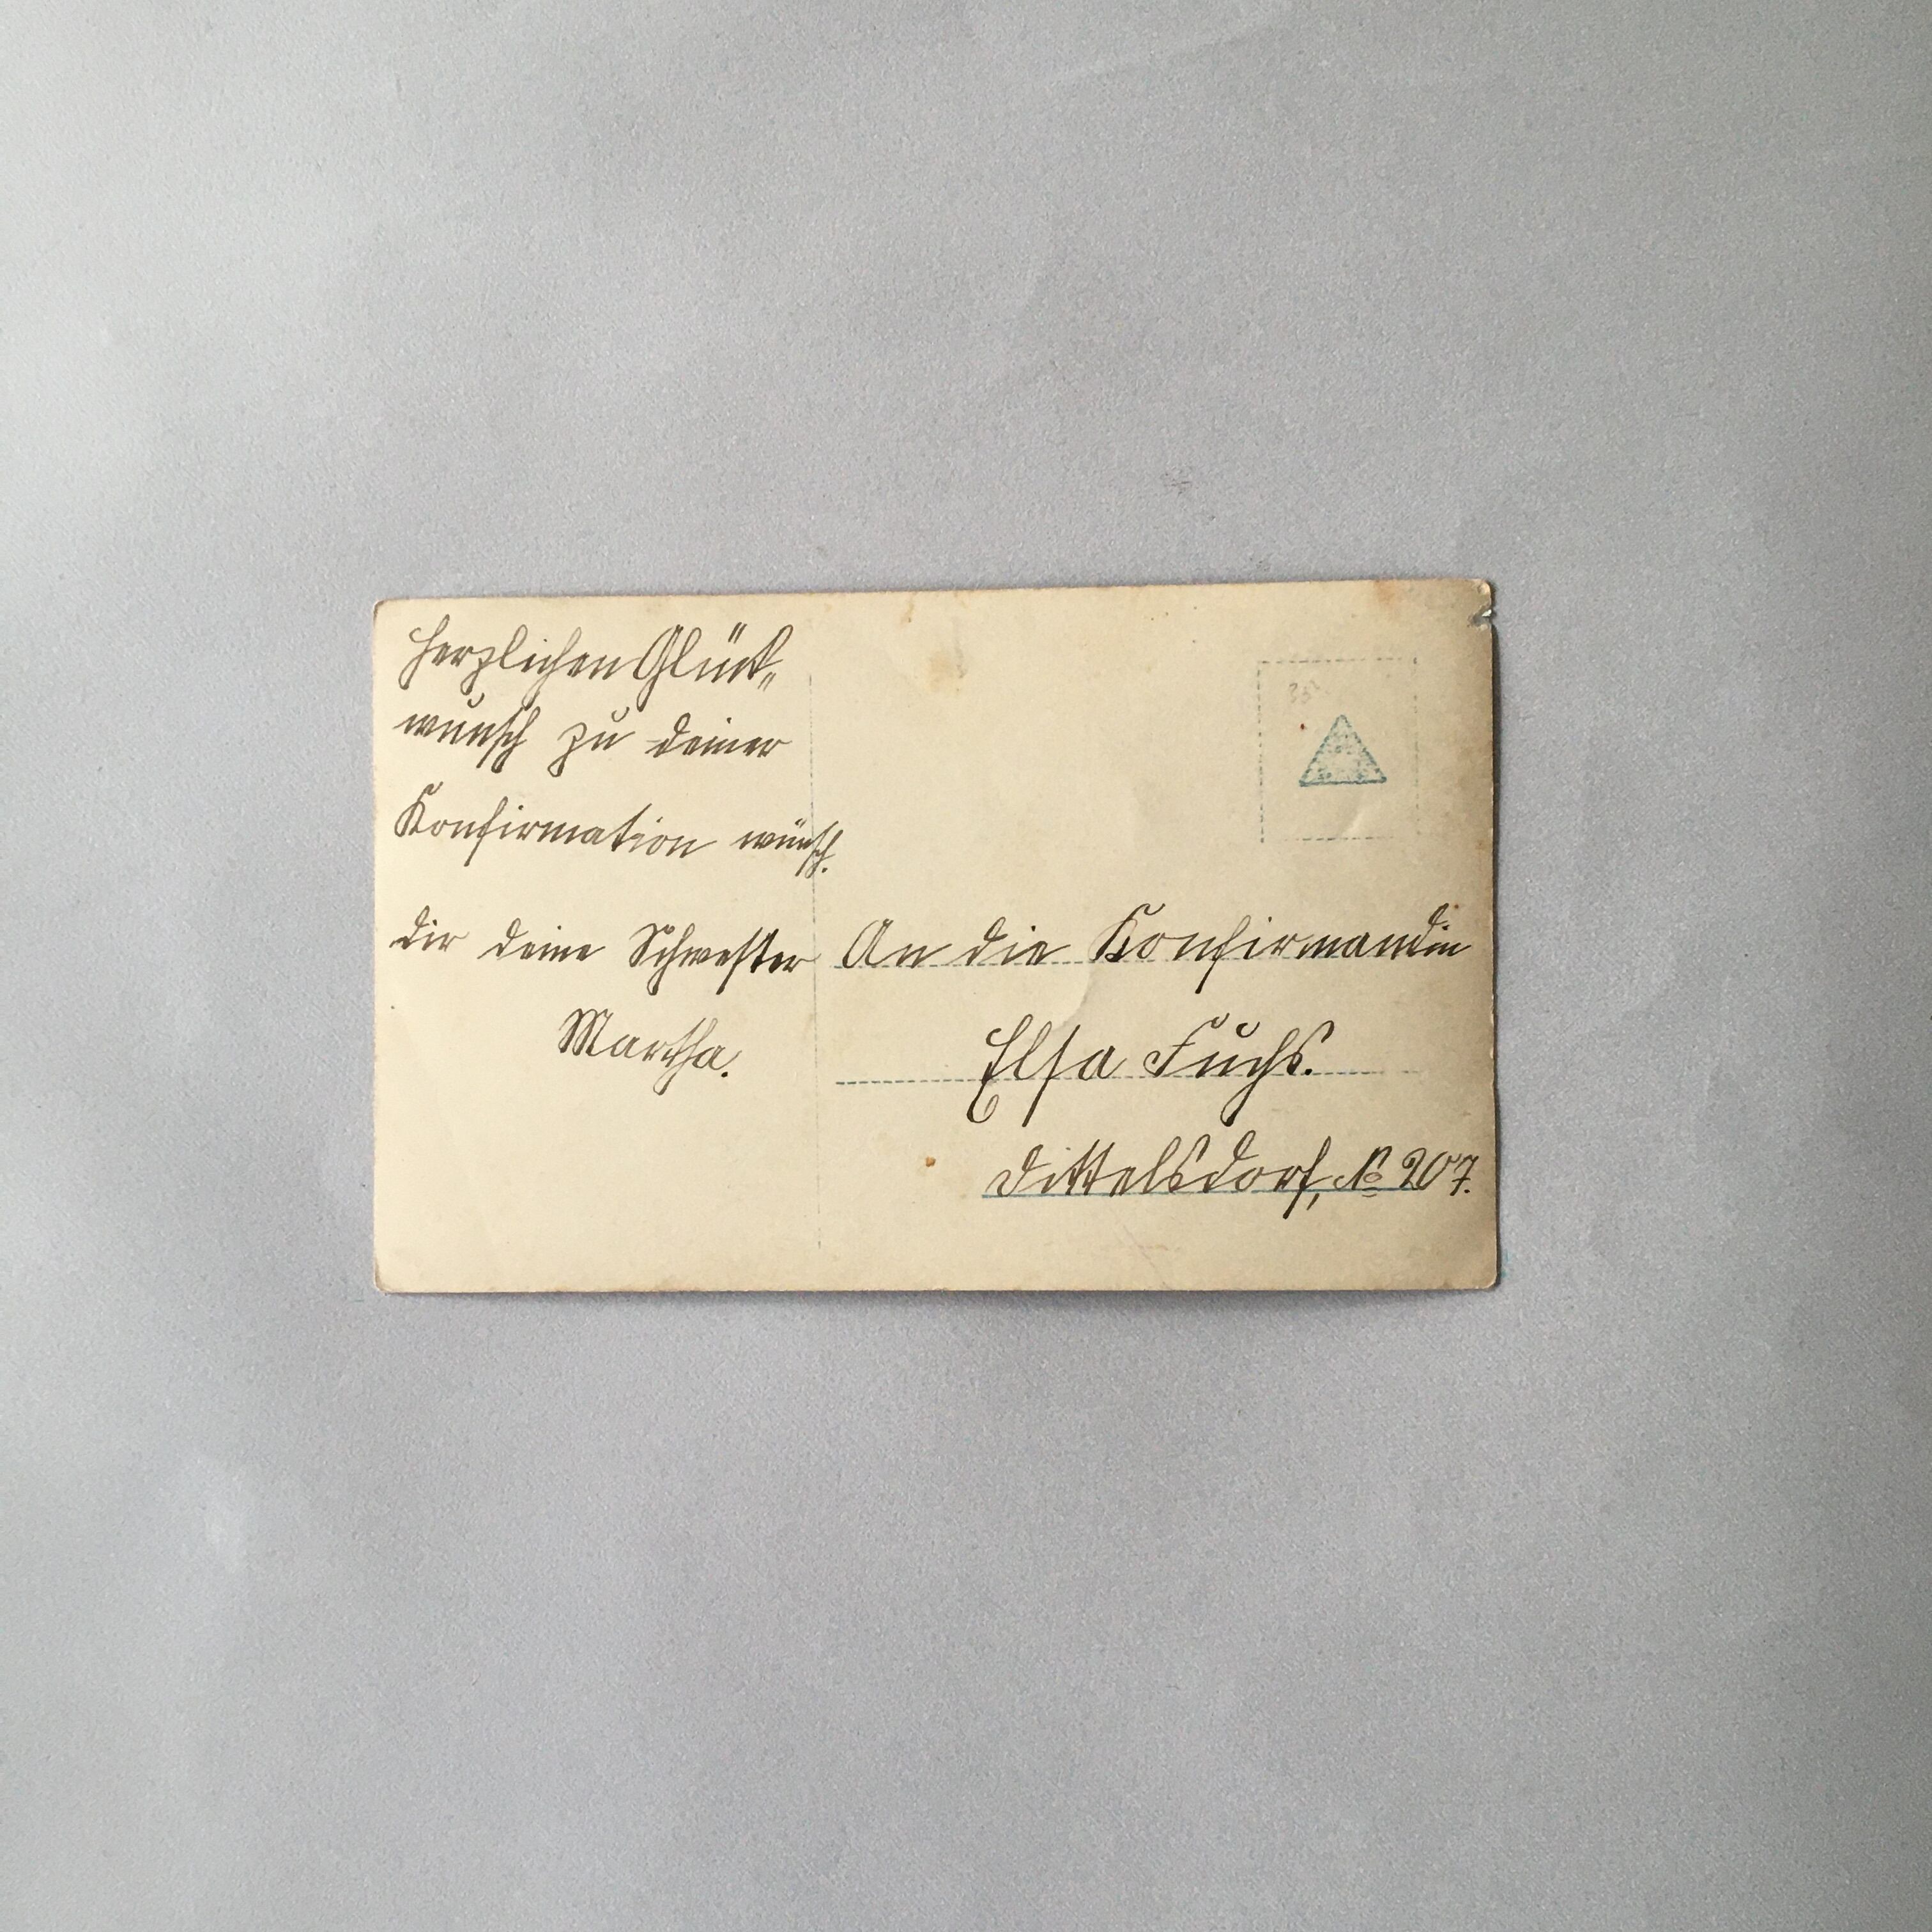 Herzlichen Glück„
wunsch zu deiner
Konfirmation wünsch.
dir deine Schwester
Martha.
An die Konfirmandin
Elsa Fuchs.
Dittelsdorf, № 207.